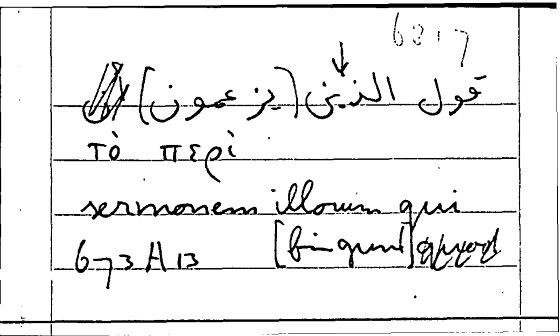 6817
قول الذين (يزعمون)
τὸ περὶ
sermonem illorum qui
673 A 13 [fingunt]